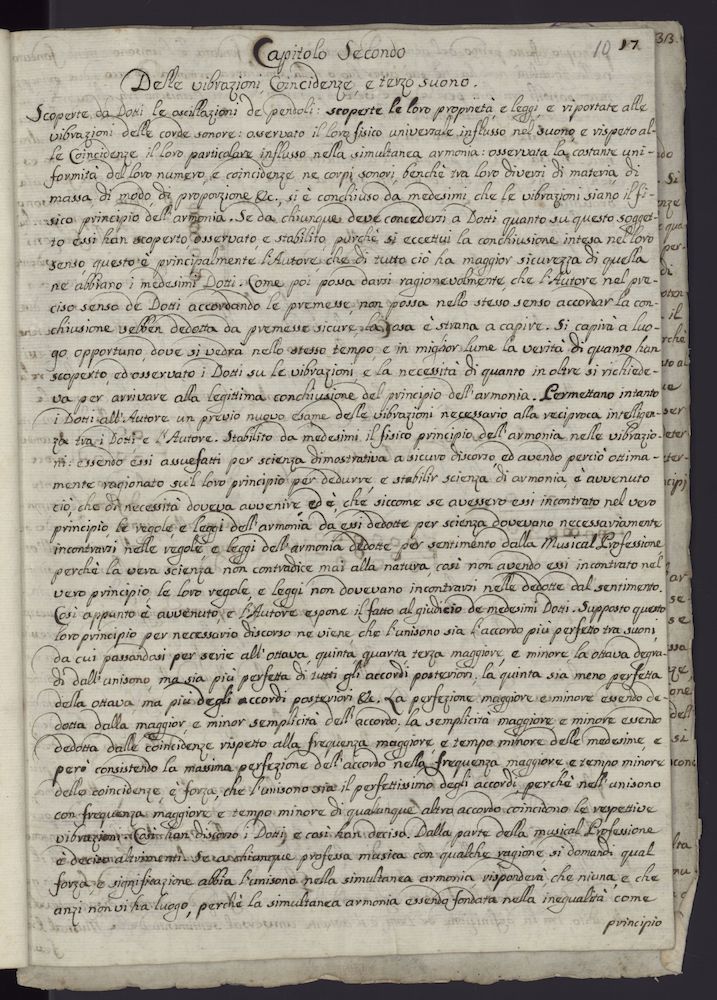 Capitolo Secondo
10 17 313.
Delle vibrazioni, Coincidenze, e terzo suono.
Scoperte da Dotti le oscillazioni de pendoli: scoperte le loro proprietà, e leggi, e riportate alle
vibrazioni delle corde sonore: osservato il loro fisico universale influsso nel suono, e rispetto al-
le Coincidenze il loro particolare influsso nella simultanea armonia: osservata la costante uni-
formità del loro numero, e coincidenze ne corpi sonori, benchè tra loro diversi di materia, di
massa, di modo, di proporzione &c., si è conchiuso da medesimi, che le vibrazioni siano il fi-
sico principio dell'armonia. Se da chiunque deve concedersi a Dotti quanto su questo sogget-
to essi han scoperto, osservato, e stabilito, purchè si eccettui la conchiusione intesa nel loro
senso, questo è principalmente l'Autore, che di tutto ciò ha maggior sicurezza di quella
ne abbiano i medesimi Dotti. Come poi possa darsi ragionevolmente, che l'Autore nel pre-
ciso senso de Dotti accordando le premesse, non possa nello stesso senso accordar la con-
chiusione sebben dedotta da premesse sicure, la cosa è strana a capire. Si capirà a luo-
go opportuno, dove si vedrà nello stesso tempo, e in miglior lume la verità di quanto han
scoperto, ed osservato i Dotti su le vibrazioni, e la necessità di quanto in oltre si richiede-
va per arrivare alla legittima conchiusione del principio dell'armonia. Permettano intanto
i Dotti all'Autore un previo nuovo esame delle vibrazioni necessario alla reciproca intelligen-
za tra i Dotti, e l'Autore. Stabilito da medesimi il fisico principio dell'armonia nelle vibrazio-
ni: essendo essi assuefatti per scienza dimostrativa a sicuro discorso, ed avendo perciò ottima-
mente ragionato sul loro principio per dedurre, e stabilir scienza di armonia, è avvenuto
ciò, che di necessità doveva avvenire, ed è, che siccome se avessero essi incontrato nel vero
principio, le regole, e leggi dell'armonia da essi dedotte per scienza dovevano necessariamente
incontrarsi nelle regole, e leggi dell'armonia dedotte per sentimento dalla Musical Professione,
perchè la vera scienza non contradice mai alla natura, così non avendo essi incontrato nel
vero principio, le loro regole, e leggi non dovevano incontrarsi nelle dedotte dal sentimento.
Così appunto è avvenuto, e l'Autore espone il fatto al giudicio de medesimi Dotti. Supposto questo
loro principio per necessario discorso ne viene che l'unisono sia l'accordo più perfetto tra suoni,
da cui passandosi per serie all'ottava, quinta, quarta, terza maggiore, e minore, la ottava degra-
di dall'unisono, ma sia più perfetta di tutti gli accordi posteriori, la quinta sia meno perfetta
della ottava, ma più degli accordi posteriori &c. La perfezione maggiore, e minore essendo de-
dotta dalla maggior, e minor semplicità dell'accordo, la semplicità maggiore, e minore essendo
dedotta dalle coincidenze rispetto alla frequenza maggiore, e tempo minore delle medesime, e
però consistendo la massima perfezione dell'accordo nella frequenza maggiore, e tempo minore
delle coincidenze, è forza, che l'unisono sia il perfettissimo degli accordi, perchè nell'unisono
con frequenza maggiore, e tempo minore di qualunque altro accordo coincidono le respettive
vibrazioni. Così han discorso i Dotti, e così han deciso. Dalla parte della musical Professione
è deciso altrimenti. Se a chiunque professa musica con qualche ragione, si domandi qual
forza, e significazione abbia l'unisono nella simultanea armonia, risponderà, che niuna, e che
anzi non vi ha luogo, perchè la simultanea armonia essendo fondata nella inequalità come
principio